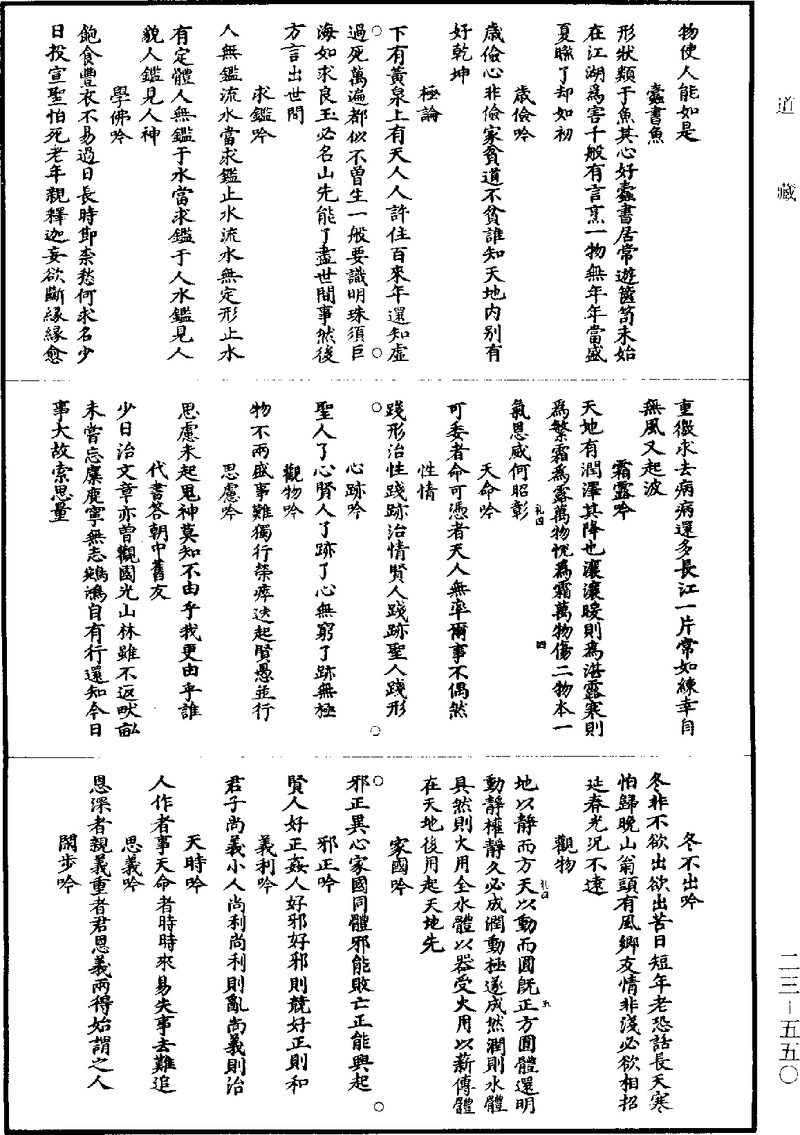 道藏
物使人能如是
蠹書魚
形狀類于魚其心好蠹書居常遊篋笥未始
在江湖為害千般有言烹一物無年年當盛
夏曝了却如初
歲儉吟
歲儉心非儉家貧道不貧誰知天地内别有
好乾坤
極論
下有黃泉上有天人人許住百來年還知虛
過死萬遍都似不曾生一般要識明珠須巨
海如求良玉必名山先能了盡世間事然後
方言出世間
求鑑吟
人無鑑流水當求鑑止水流水無定形止水
有定體人無鑑于水當求鑑于人水鑑見人
貌人鑑見人神
學佛吟
飽食豐衣不易過日長時節柰愁何求名少
日投宣聖怕死老年親釋迦妄欲斷緣緣愈
重徼求去病病還多長江一片常如練幸自
無風又起波
霜露吟
天地有潤澤其降也瀼瀼暖則為湛露寒則
為繁霜為露萬物恱為霜萬物傷二物本一
氣恩威何昭彰
禮四
四
天命吟
可委者命可憑者天人無率爾事不偶然
性情
踐形治性踐跡治情賢人踐跡聖人踐形
心跡吟
聖人了心賢人了跡了心無窮了跡無極
觀物吟
物不兩盛事難獨行榮瘁迭起賢愚並行
思慮吟
思慮未起鬼神莫知不由乎我更由乎誰
代書答朝中舊友
少日治文章亦曾觀國光山林雖不返畎畝
未嘗忘麋鹿寧無志鵷鴻自有行還知今日
事大故索思量
冬不出吟
冬非不欲出欲出苦日短年老恐話長天寒
怕歸晚山翁頭有風鄉友情非淺必欲相招
延春光況不遠
觀物
地以靜而方天以動而圓旣正方圓體還明
禮四
五
動靜權靜久必成潤動極遂成然潤則水體
具然則火用全水體以器受火用以薪傳體
在天地後用起天地先
家國吟
邪正異心家國同體邪能敗亡正能興起
邪正吟
賢人好正姦人好邪好邪則競好正則和
義利吟
君子尚義小人尚利尚利則亂尚義則治
天時吟
人作者事天命者時時來易失事去難追
恩義吟
恩深者親義重者君恩義兩得始謂之人
闊步吟
二三－五五〇